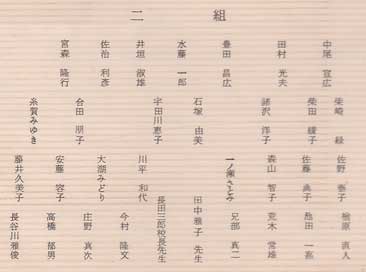 二組
中尾 宣広
田村 光夫
豊田 昌広
水藤 一郎
井垣 淑雄
佐治 利彦
宮森 隆行
柴崎 緑
柴田 綾子
諸沢 洋子
石塚 由美
宇田川恵子
合田 朋子
糸賀みゆき
佐野 泰子
佐藤 典子
森山 智子
一ノ瀬さとみ
田中雅子 先生
長田三郎校長先生
川平 和代
大湖みどり
安藤 容子
藤井久美子
檜原 直人
亀田 一嘉
荒木 常雄
兄部 真二
今村 隆文
庄野 真次
高橋 郁男
長谷川雅俊